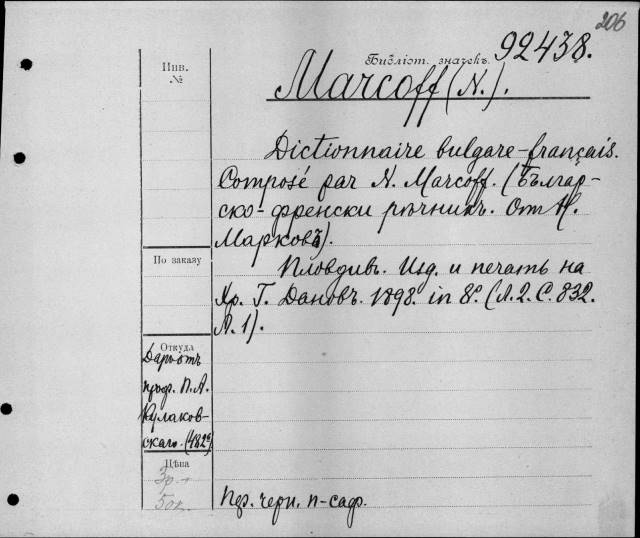 206
Инв.
№
Библіот. значекъ.
92438.
Marcoff (N.).
Dictionnaire bulgare-français.
Composé par N. Marcoff. (Българ-
ско-френски рѣчникъ. Отъ Н.
Марковъ).
По заказу
Пловдивъ. Изд. и печать на
Хр. Г. Дановъ. 1898. in 8º. (Л. 2. С. 832.
Л. 1).
Откуда
Даръ отъ
проф. П. А.
Кулаков-
скаго. (482
Цѣна
3р.
50к.
Пер. черн. п-саф.